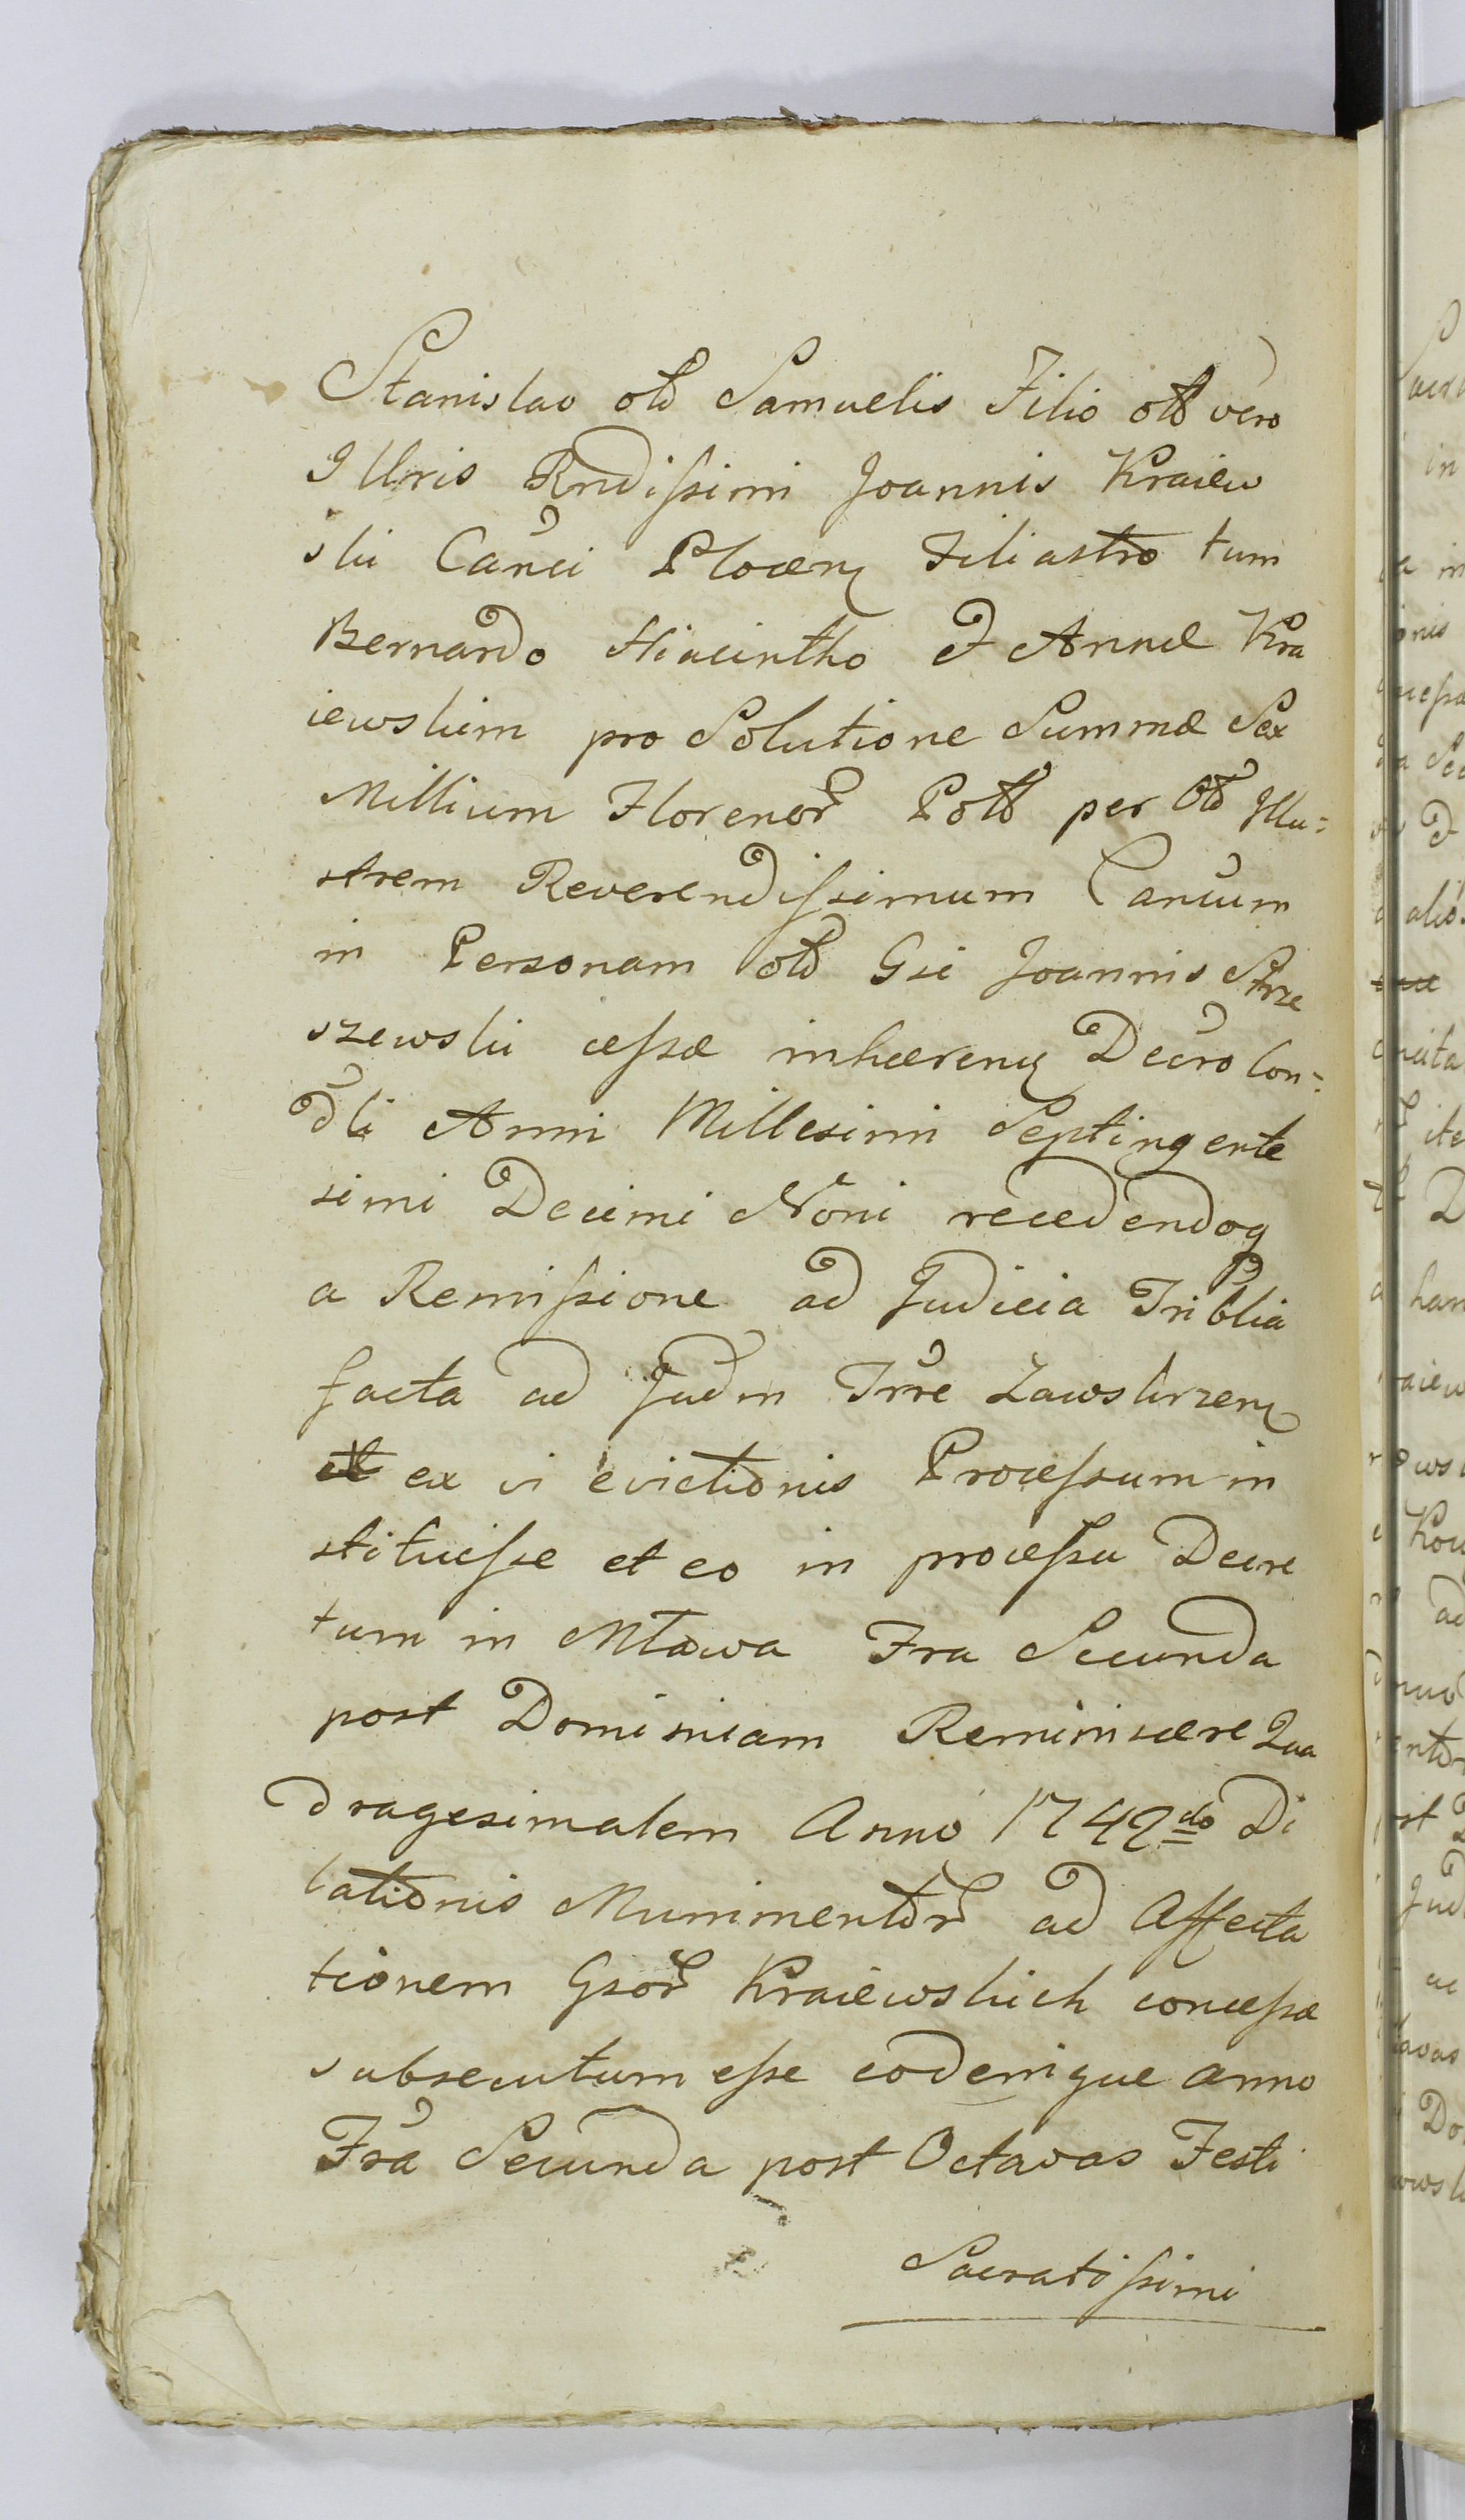 Stanislao old Samuelis Filio old vero
Illris Rndissimi Joannis Kraiew
ski Canci Plocen Filiastro tum
Bernardo Hiacintho & Annæ Kra
iewskim pro Solutione Summæ Sex
Millium Florenor Poll per Old Illu=
strem Reverendissimum Cancum
in Personam old Gsi Joannis Strze
szewski cessæ inhæren Decro Con=
dli Anni Millesimi Septingente
simi Decimi Noni recedendoq
a Remissione ad Judicia Triblia
facta ad Judm Trre Zawskrzen
ex vi evictionis Processum in
stituisse et eo in processu Decre
tum in Mlawa Fra Secunda
post Dominicam Reminiscere Qua
dragesimalem Anno 1742do Di
lationis Munimentor ad Affecta
tionem Gsor Kraiewskich concessæ
subsecutum esse eodemque anno
Fra Secunda post Octavas Festi
Sacratissimi